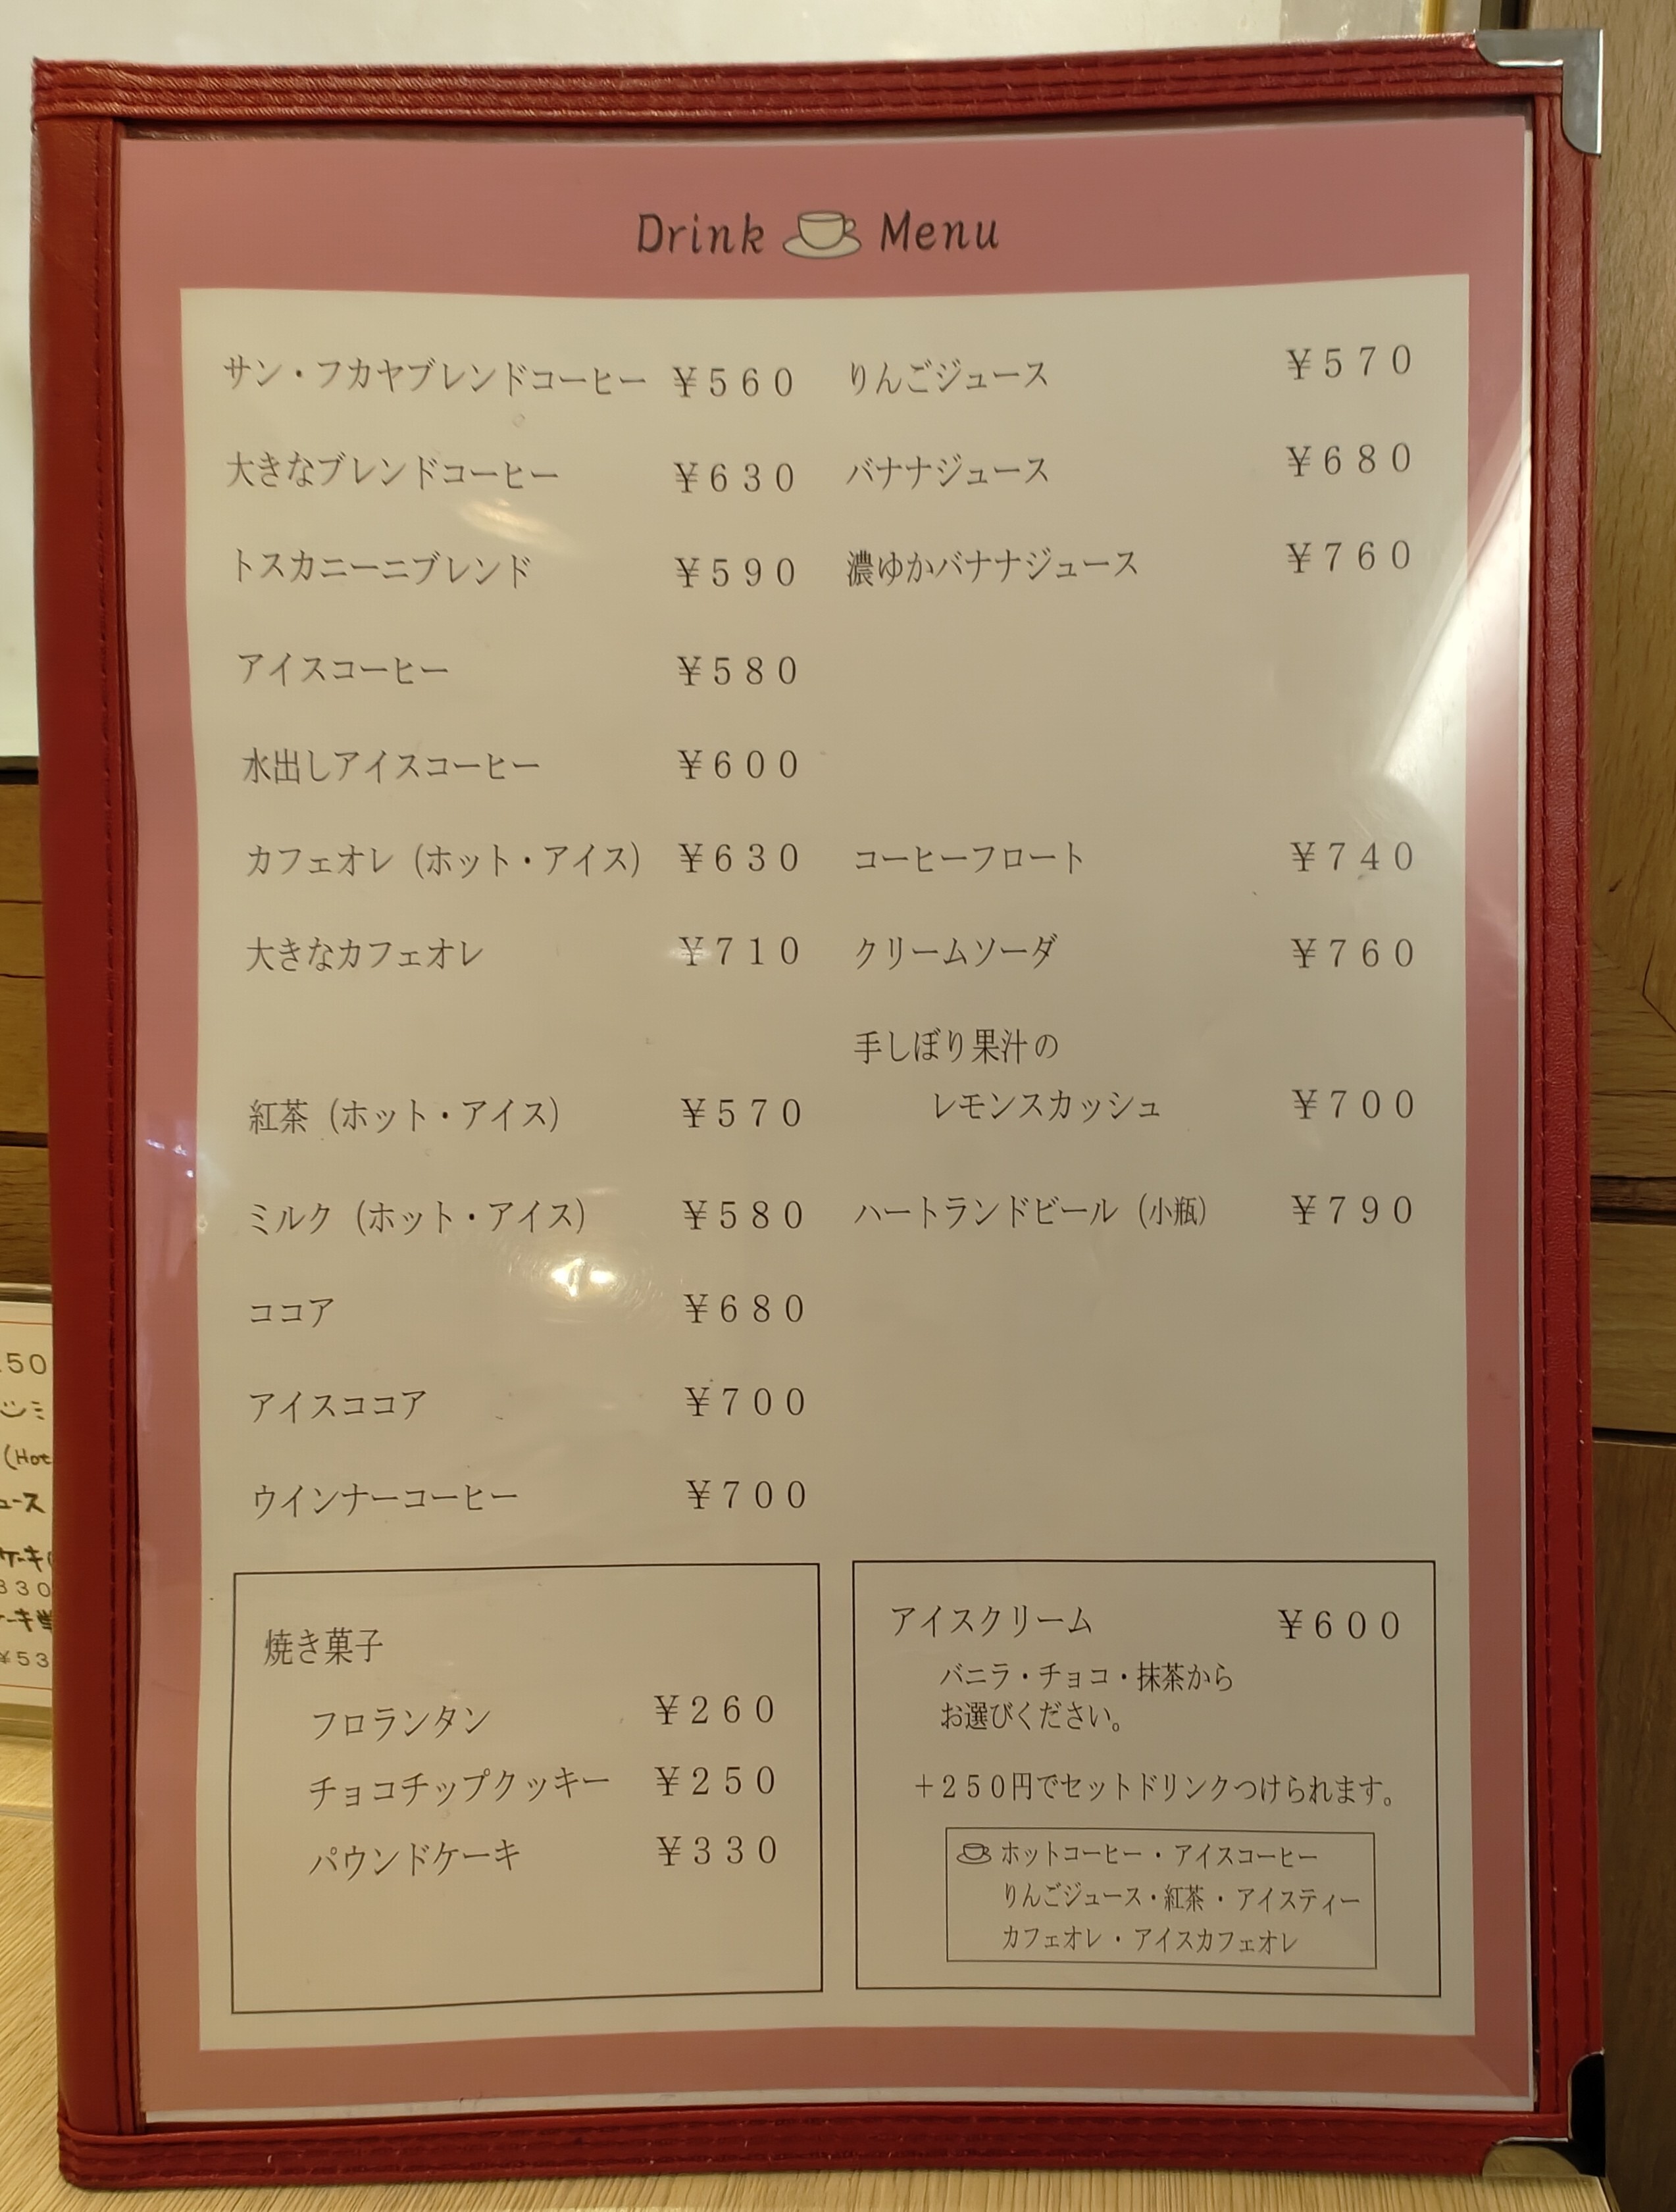 Drink Menu
サン・フカヤブレンドコーヒー ¥560
大きなブレンドコーヒー ¥630
トスカニーニブレンド ¥590
アイスコーヒー ¥580
水出しアイスコーヒー ¥600
カフェオレ（ホット・アイス） ¥630
大きなカフェオレ ¥710
紅茶（ホット・アイス） ¥570
ミルク（ホット・アイス） ¥580
ココア ¥680
アイスココア ¥700
ウインナーコーヒー ¥700
りんごジュース ¥570
バナナジュース ¥680
濃ゆかバナナジュース ¥760
コーヒーフロート ¥740
クリームソーダ ¥760
手しぼり果汁の
レモンスカッシュ ¥700
ハートランドビール（小瓶） ¥790
焼き菓子
フロランタン ¥260
チョコチップクッキー ¥250
パウンドケーキ ¥330
アイスクリーム ¥600
バニラ・チョコ・抹茶から
お選びください。
＋250円でセットドリンクつけられます。
ホットコーヒー・アイスコーヒー
りんごジュース・紅茶・アイスティー
カフェオレ・アイスカフェオレ
50
(Hot
ュース
ケーキ(
330
ーキ
¥53